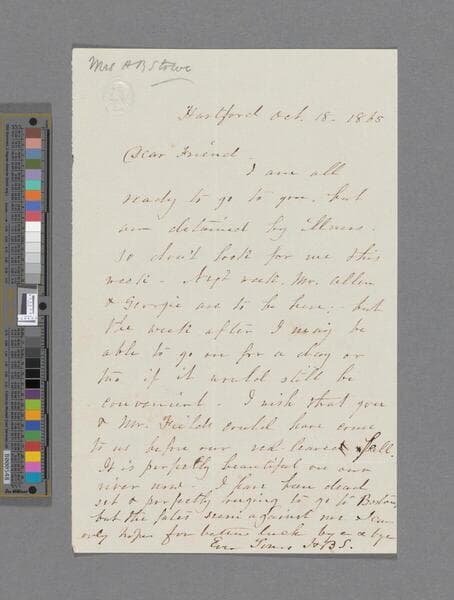 Mrs H B Stowe
Hartford Oct. 18 - 1865
Dear Friend
I am all
ready to go to you, but
am detained by illness.
so don't look for me this
week - Next week, Mr. Allen
& Georgie are to be here; - but
the week after I may be
able to go on for a day or
two if it would still be
convenient. I wish that you
& Mr. Fields could have come
to us before our red leaves fall.
It is perfectly beautiful on our
river now - I have been dead
set & perfectly longing to go to Boston,
but the fates seem against me I can
only hope for better luck by & bye
Ever Yours HBS.